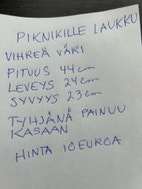 PIKNIKILLE LAUKKU
VIHREÄ VÄRI
PITUUS 44cm
LEVEYS 24cm
SYVYYS 23cm
TYHJÄNÄ PAINUU
KASAAN
HINTA 10 EUROA